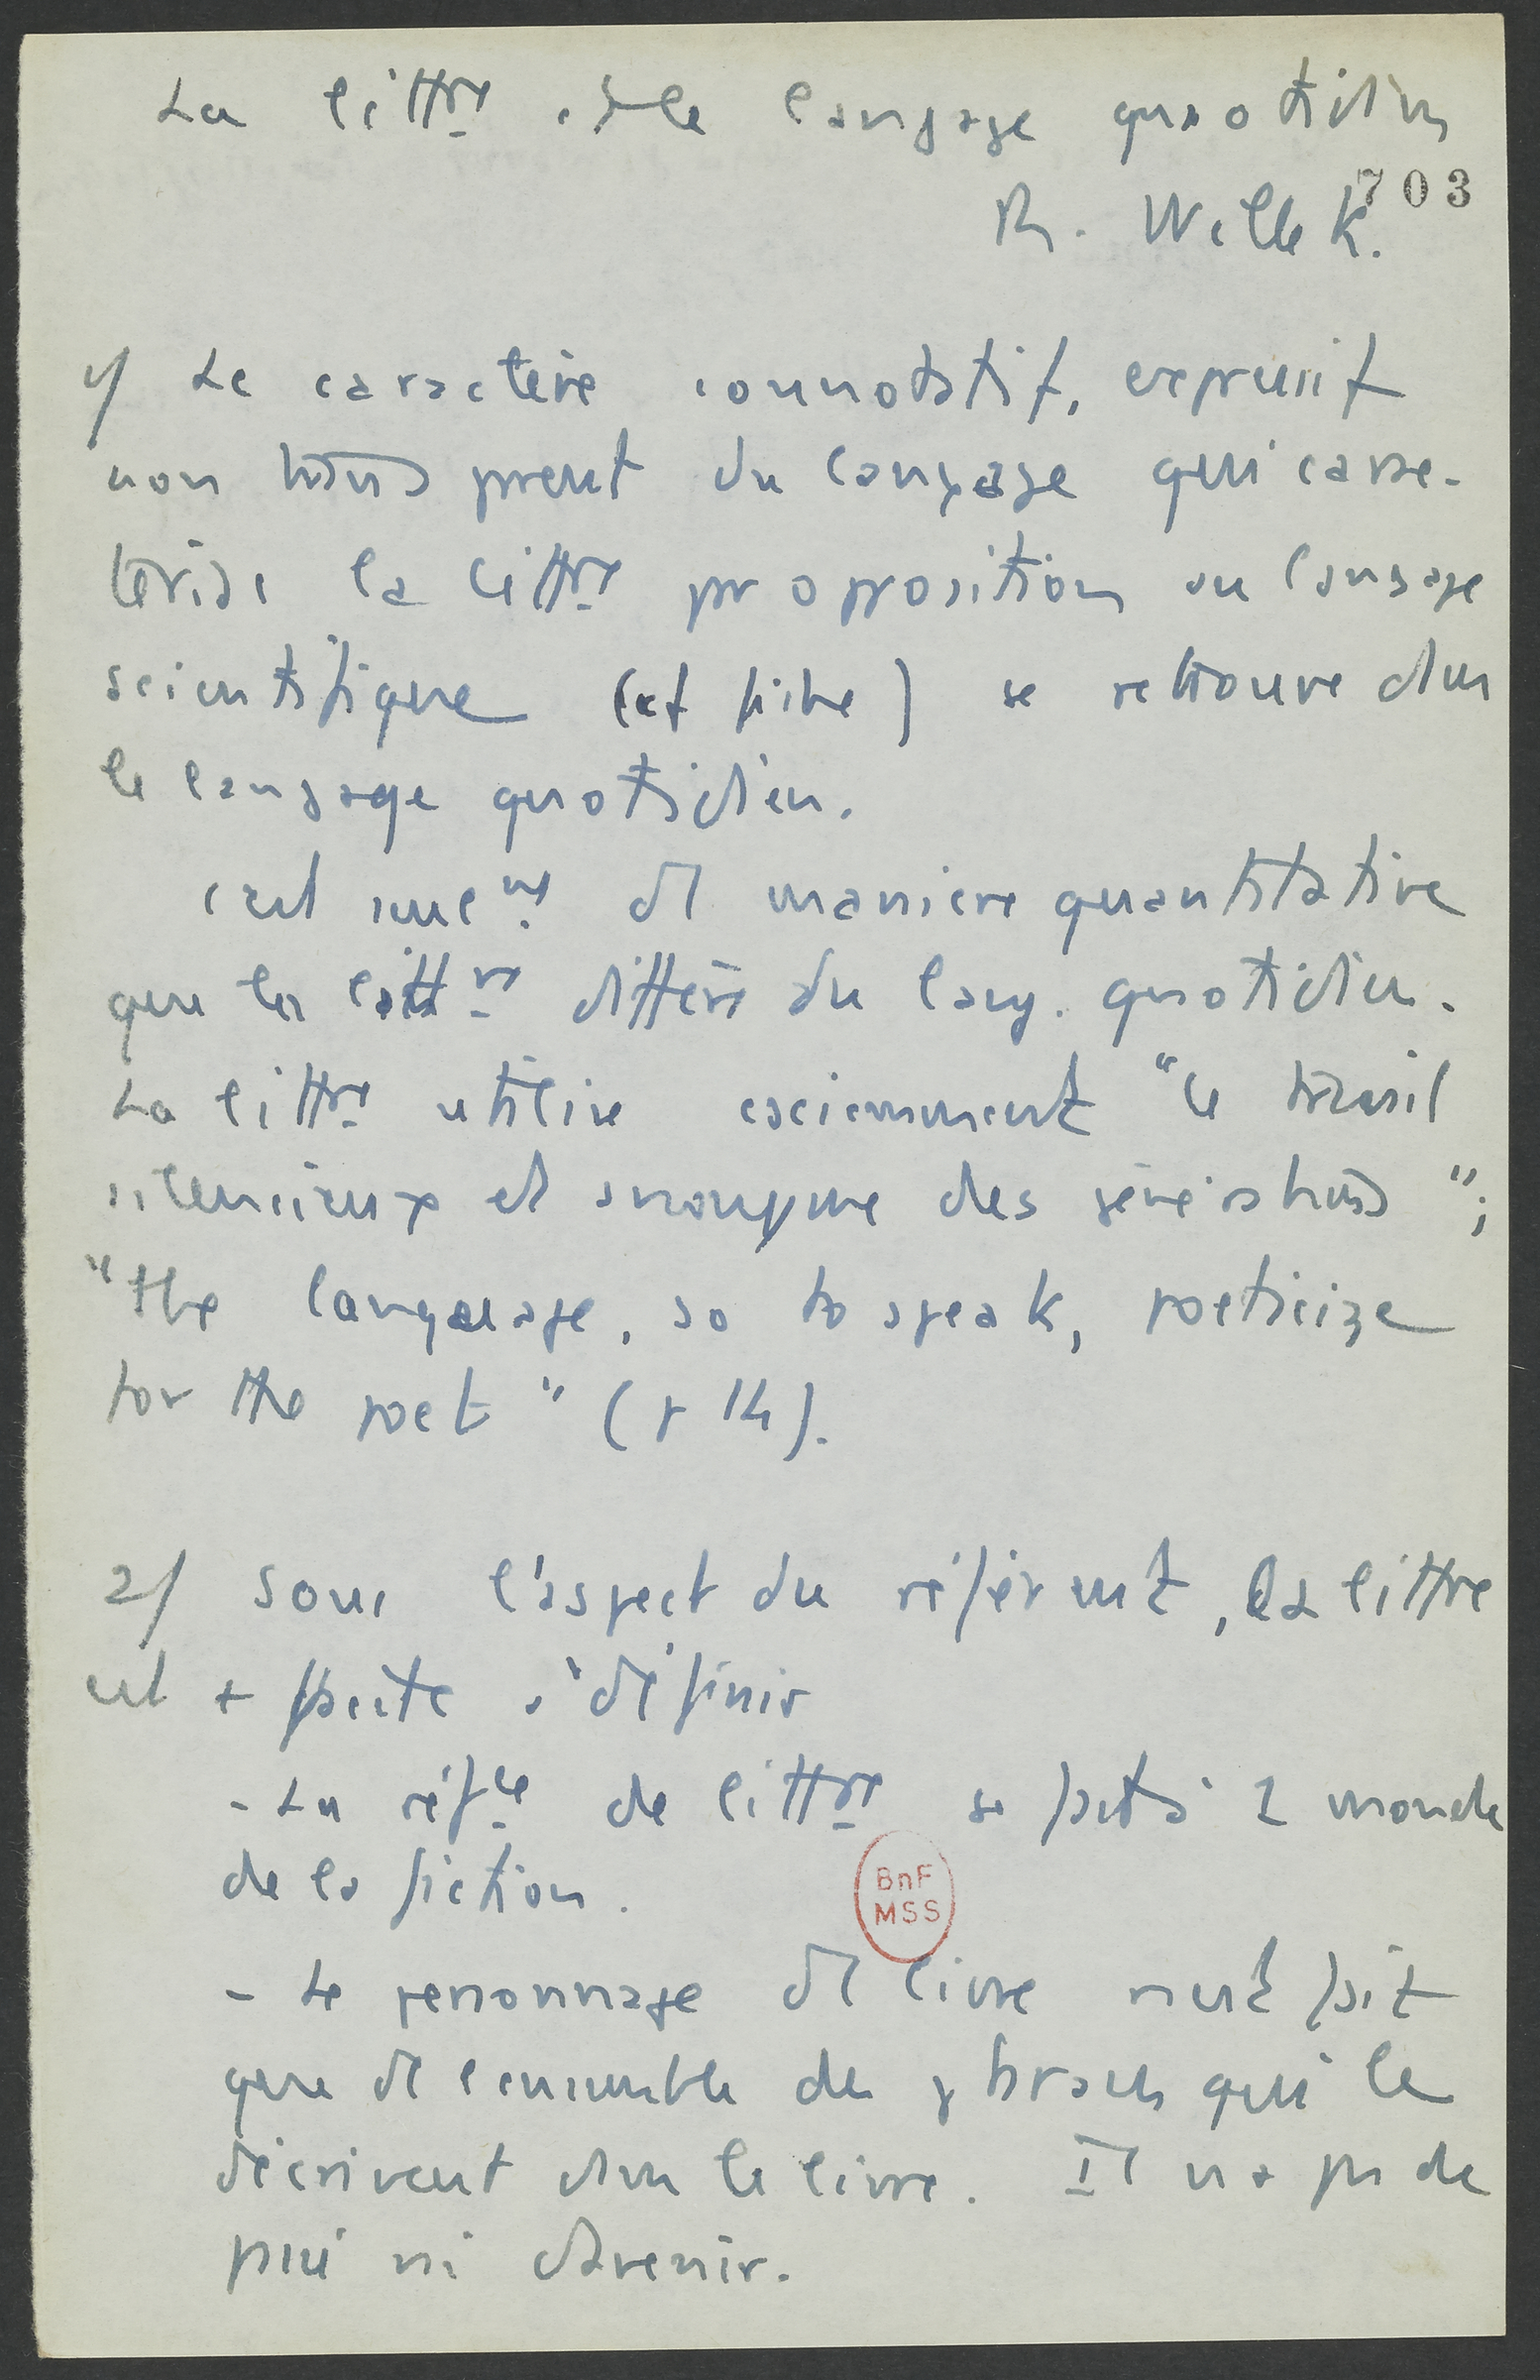 La littre et le langage quotidien
703
R. Wellek.
1/ Le caractère connotatif, expressif
non transparent du langage qui carac-
térise la littre pr opposition au langage
scientifique (cf fiche) se retrouve dans
le langage quotidien.
c'est seulemt de manière quantitative
que la littre diffère du lang. quotidien.
La littre utilise csciemment "le travail
silencieux et anonyme des générations";
"the language, so to speak, poeticize
for the poet" (p 14).
2/ Sous l'aspect du référent, la littre
est + facile à définir
- La réfce de littre se fait à 1 monde
de la fiction.
- Le personnage de livre n'est fait
que de l'ensemble des phrases qui le
décrivent dans le livre. Il n'a pas de
passé ni d'avenir.
BnF
MSS